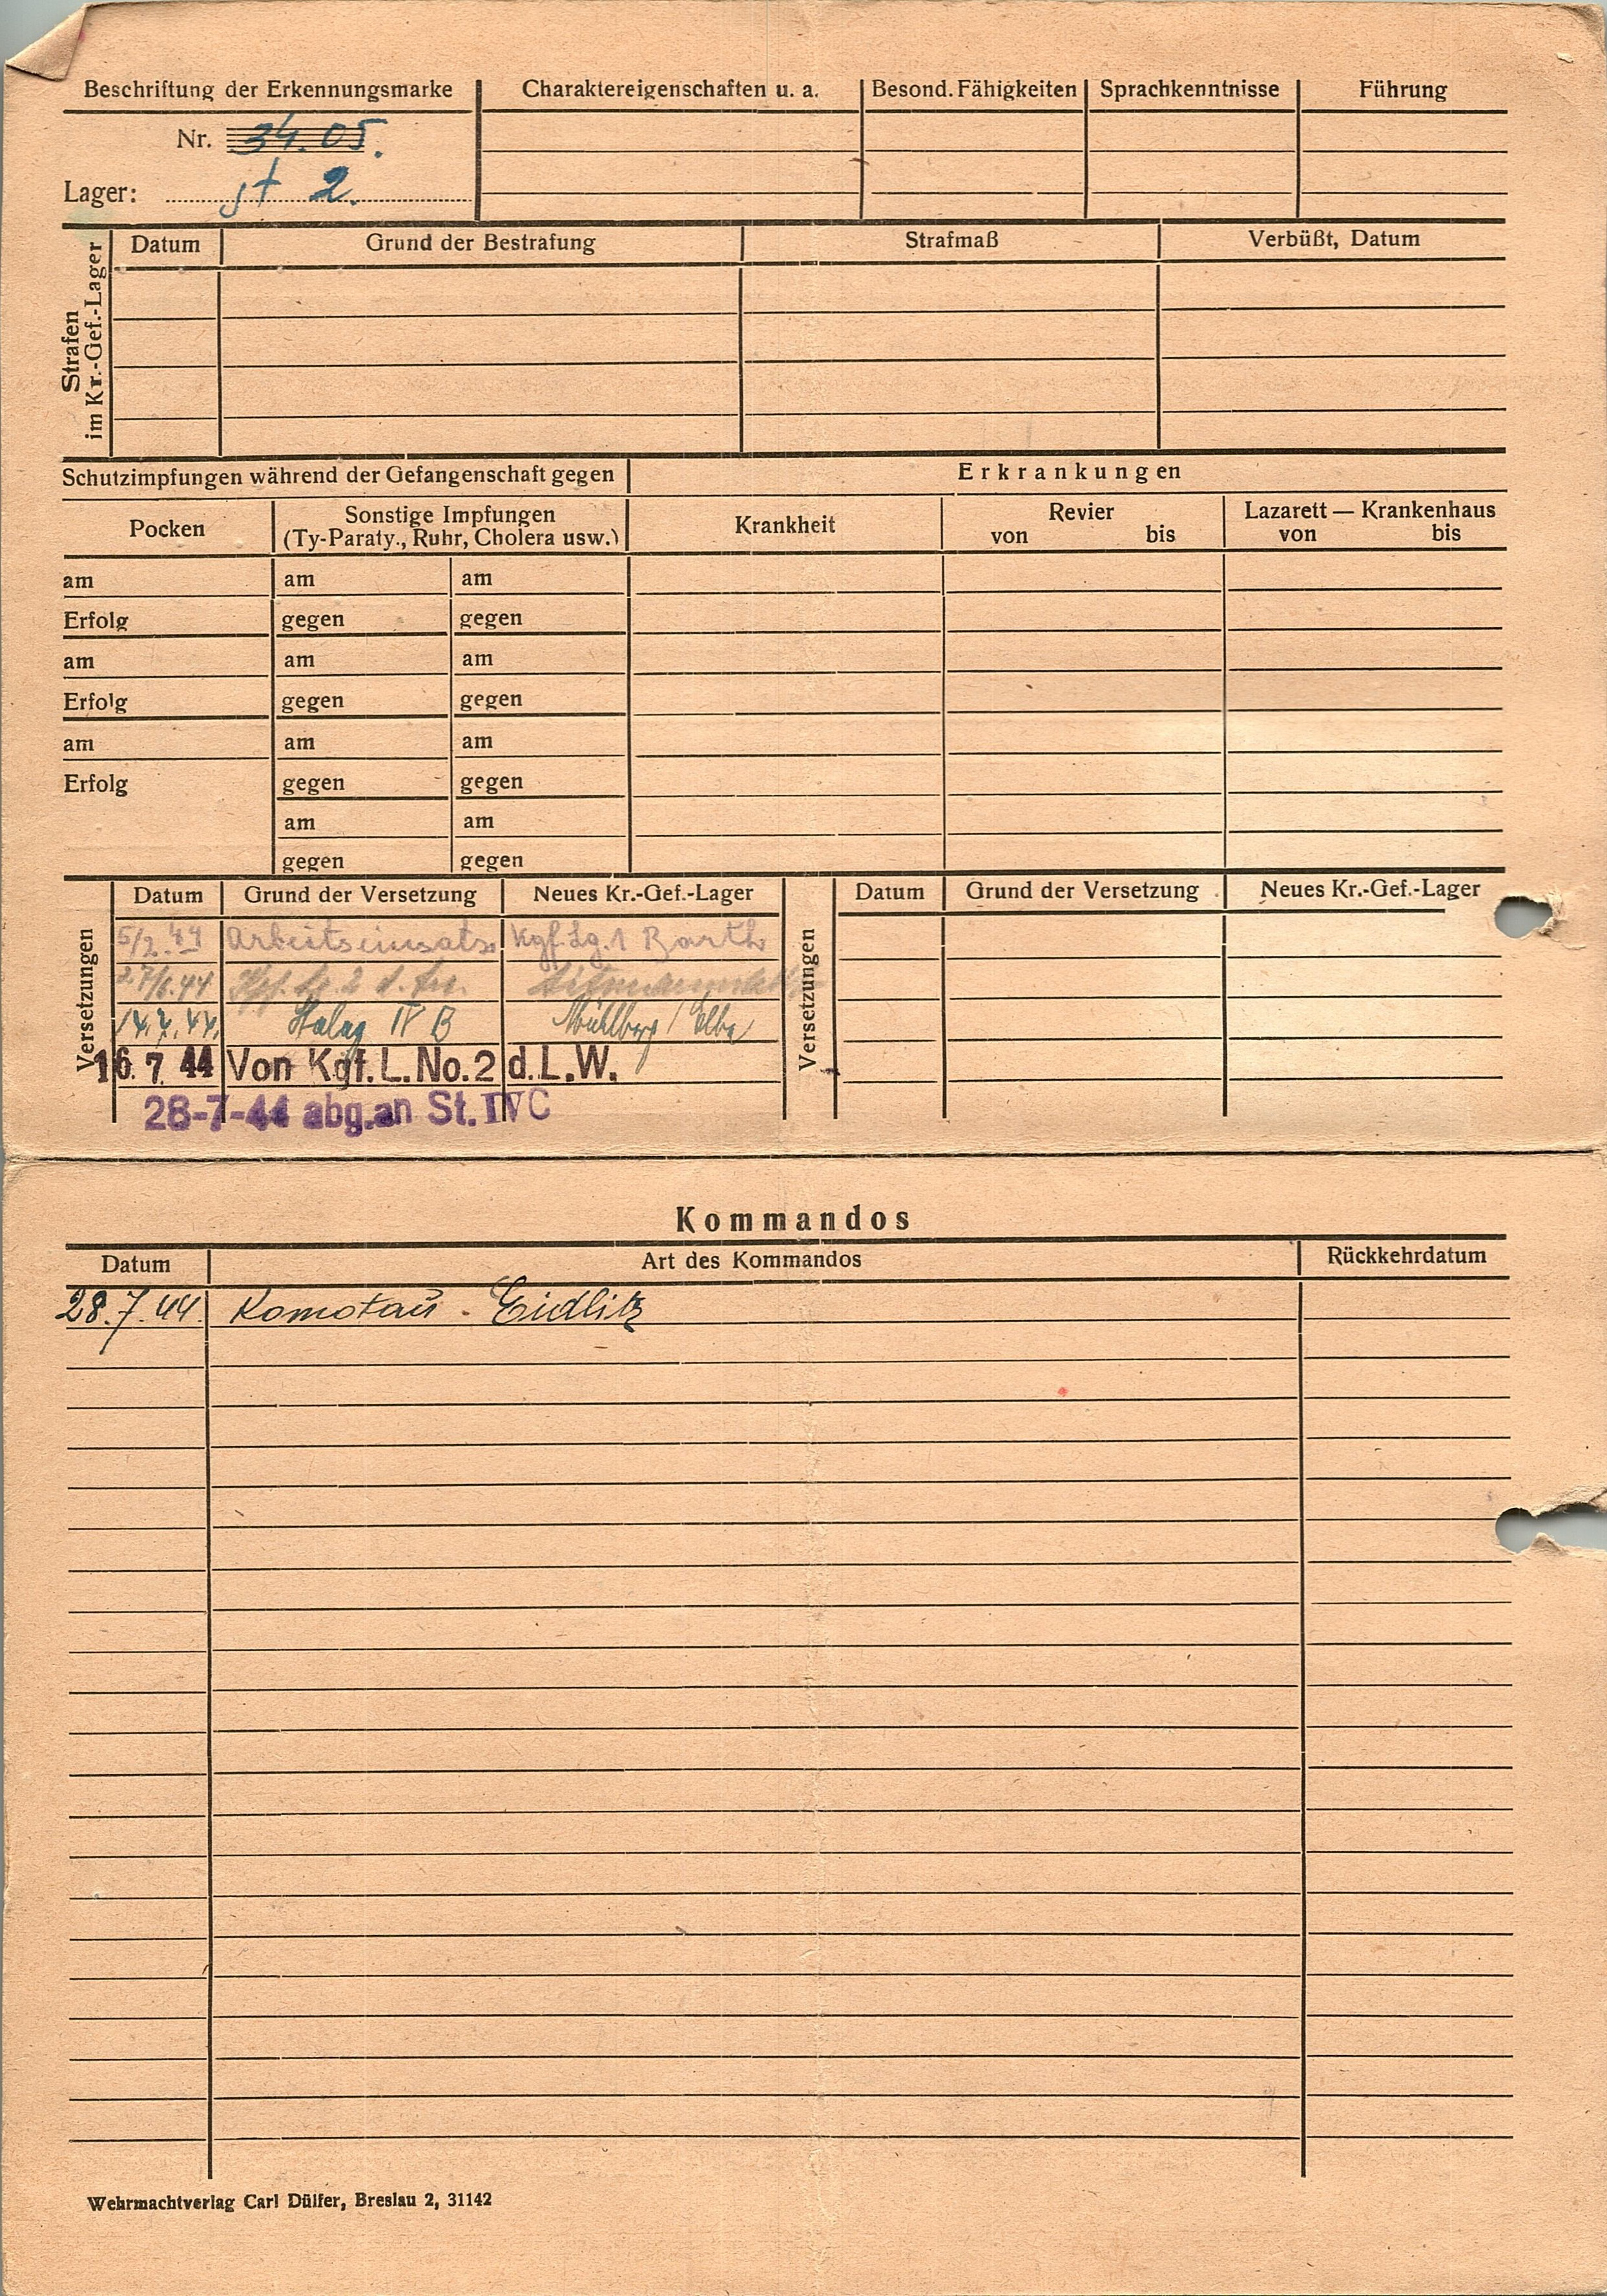 Beschriftung der Erkennungsmarke Charaktereigenschaften u. a. Besond. Fähigkeiten Sprachkenntnisse Führung
Nr. 34.05.
Lager: st 2.
Strafen
im Kr.-Gef.-Lager
Datum Grund der Bestrafung Strafmaß Verbüßt, Datum
Schutzimpfungen während der Gefangenschaft gegen Erkrankungen
Pocken Sonstige Impfungen
(Ty-Paraty., Ruhr, Cholera usw.) Krankheit Revier
von bis Lazarett — Krankenhaus
von bis
am am am
Erfolg gegen gegen
am am am
Erfolg gegen gegen
am am am
Erfolg gegen gegen
am am
gegen gegen
Versetzungen Datum Grund der Versetzung Neues Kr.-Gef.-Lager Versetzungen Datum Grund der Versetzung Neues Kr.-Gef.-Lager
5/2.44 Arbeitseinsatz Kgf. Lg. 1 Barth
27/6.44
14.7.44. Stalag IV B Mühlberg / Elbe
16. 7 44 Von Kgf. L. No. 2 d. L. W.
28-7-44 abg. an St. IVC
Kommandos
Datum Art des Kommandos Rückkehrdatum
28.7.44. Komotau - Eidlitz
Wehrmachtverlag Carl Dülfer, Breslau 2, 31142